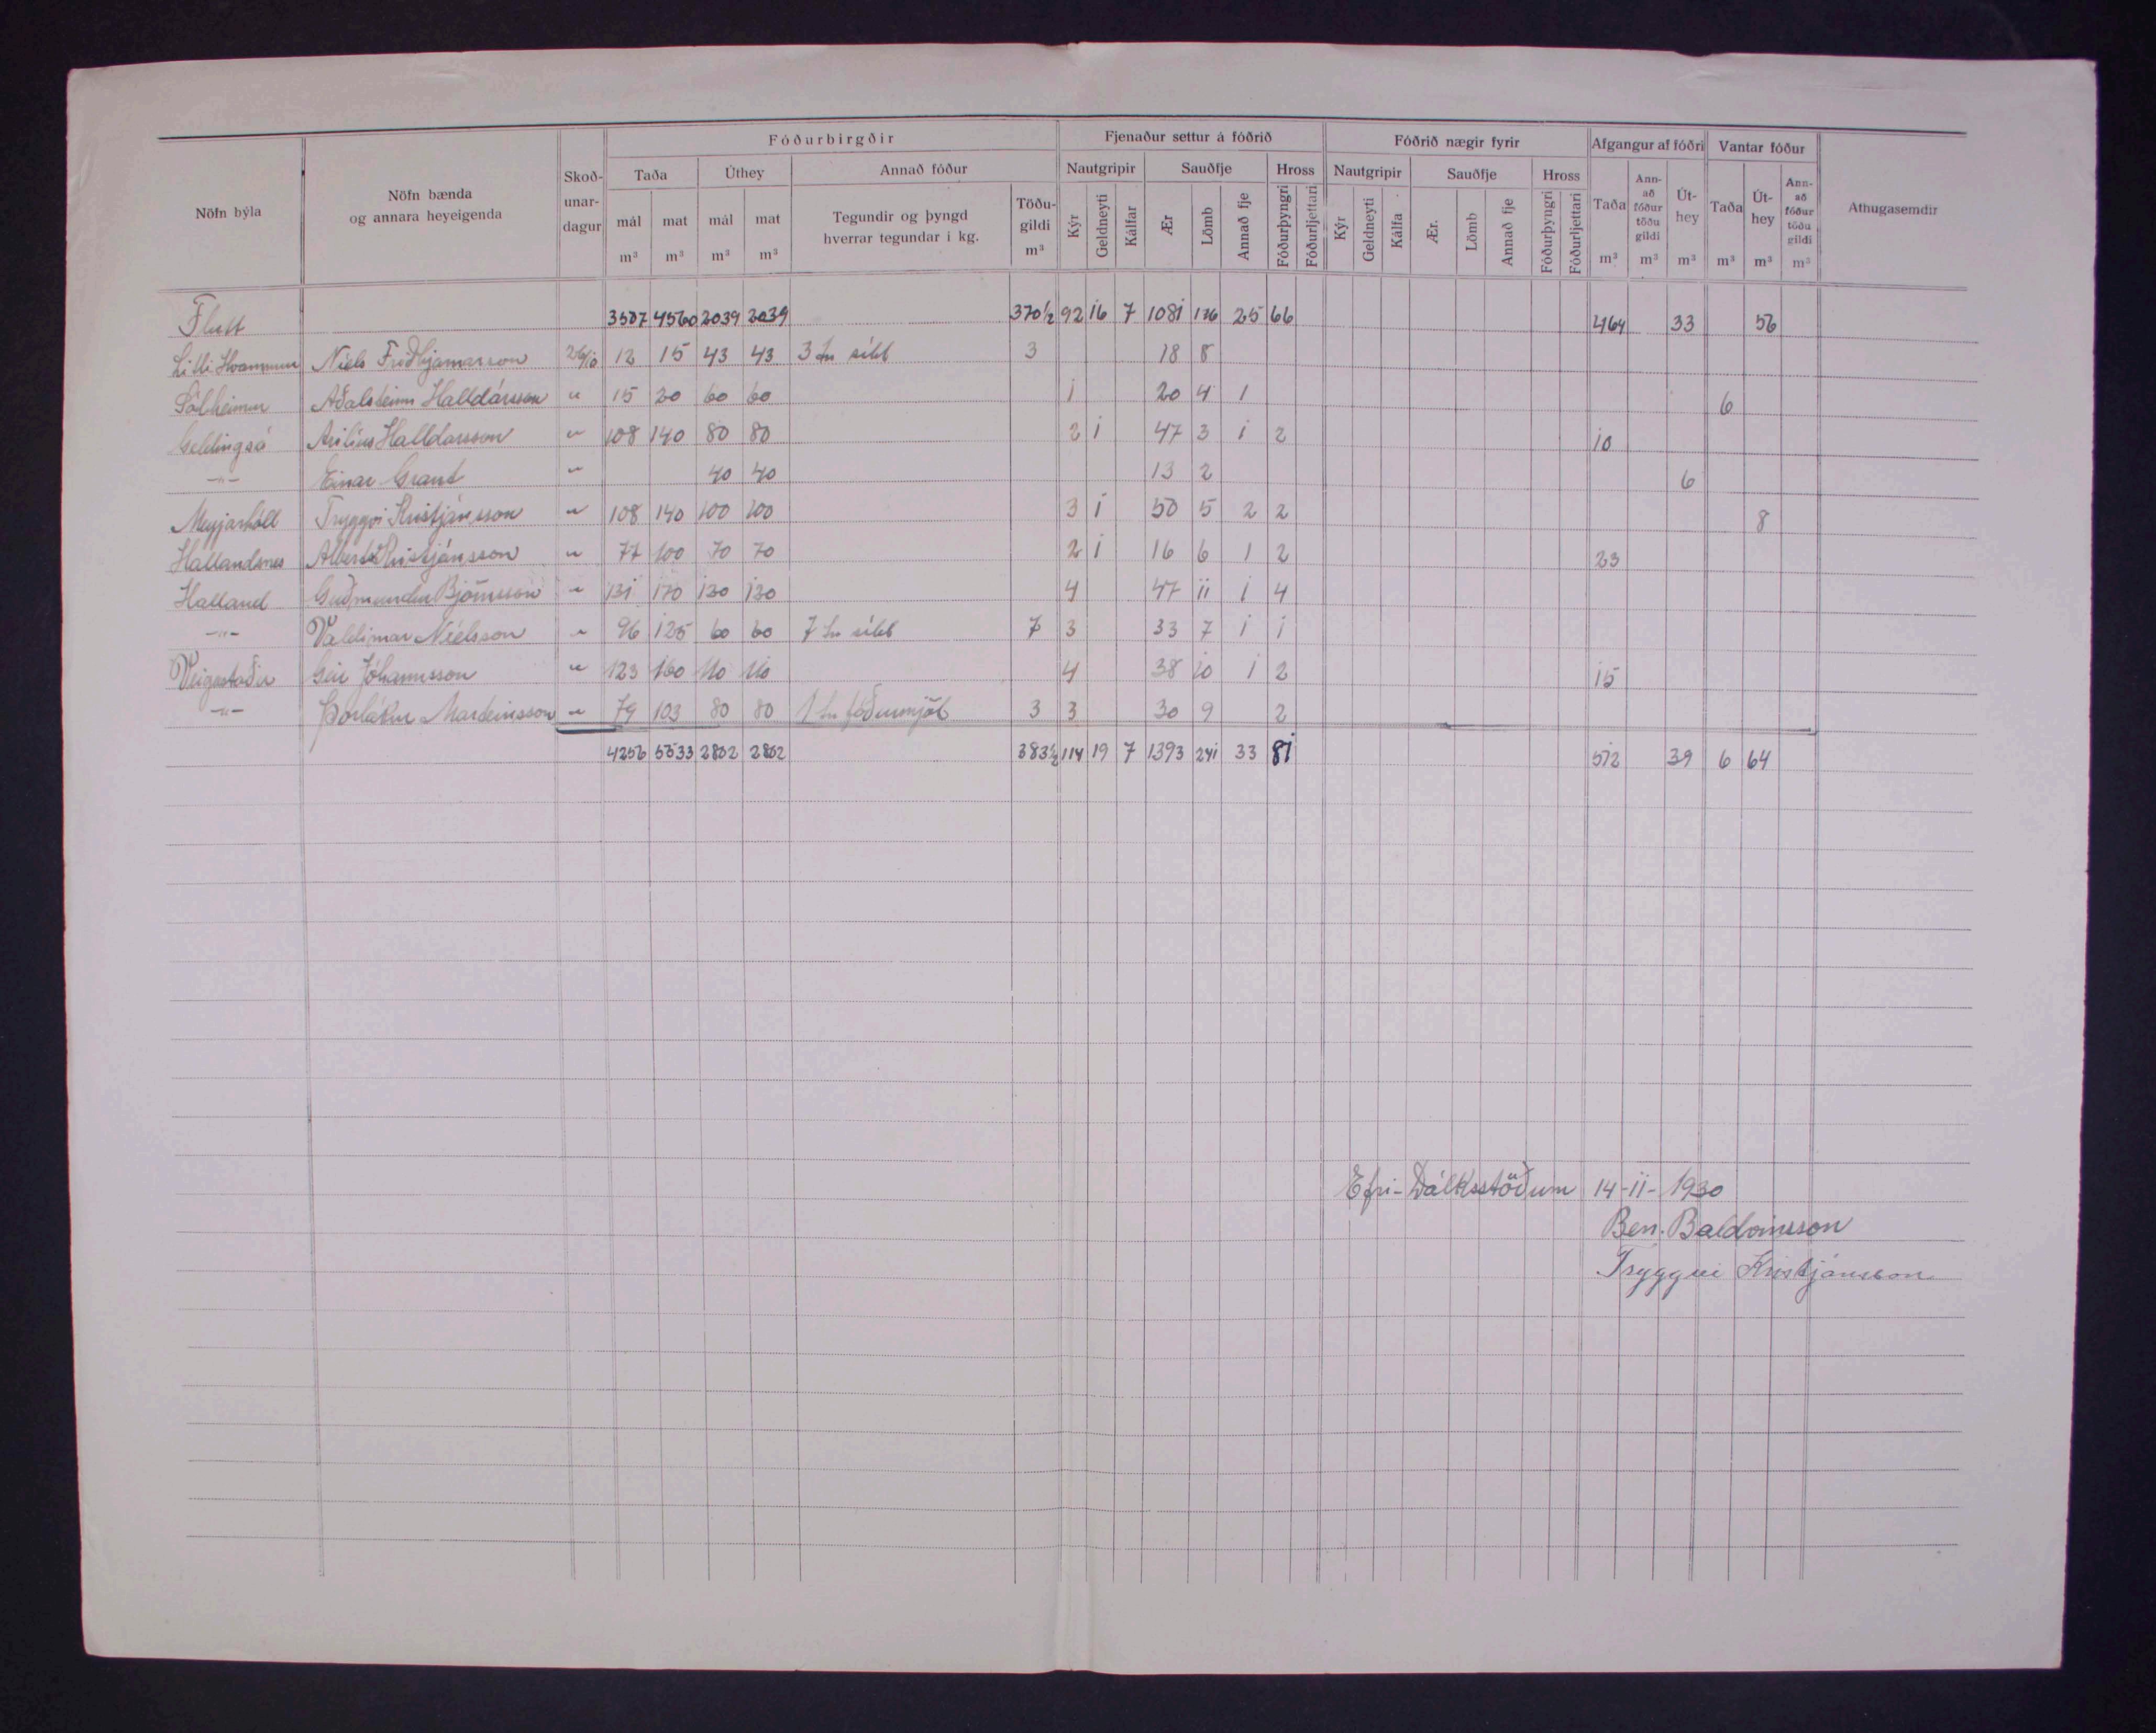 Fóðurbirgðir Fjenaður settur á fóðrið Fóðrið nægir fyrir Afgangur af fóðri Vantar fóður
Nöfn býla Nöfn bænda og annara heyeigenda Skoðunardagur Taða Úthey Annað fóður Nautgripir Sauðfje Hross Nautgripir Sauðfje Hross Athugasemdir
mál m³ mat m³ mál m³ mat m³ Tegundir og þyngd hverrar tegundar í kg. Töðugildi m³ Kýr Geldneyti Kálfar Ær Lömb Annað fje Fóðurþyngri Fóðurljettari Kýr Geldneyti Kálfa Ær. Lömb Annað fje Fóðurþyngri Fóðurljettari Taða m³ Annað fóður töðu gildi m³ Úthey m³ Taða m³ Úthey m³ Annað fóður töðu gildi m³
Flutt 3507 4560 2039 2039 370½ 92 16 7 1081 176 25 66 464 33 56
Litli Hvammur Niels Friðbjarnarson 26/10 12 15 43 43 3 tn síld 3 18 8
Sólheimar Aðalsteinn Halldórsson " 15 20 60 60 1 20 4 1 6
Geldingsá Arilíus Halldorsson " 108 140 80 80 2 1 47 3 1 2 10
-"- Einar Grant " 40 40 13 2 6
Meyjarhóll Tryggvi Kristjánsson " 108 140 100 100 3 1 50 5 2 2 8
Hallandsnes Albert Kristjánsson " 77 100 70 70 2 1 16 6 1 2 23
Halland Guðmundur Björnsson " 131 170 120 120 4 47 11 1 4
-"- Valdimar Níelsson " 96 125 60 60 7 tn síld 7 3 33 7 1 1
Veigastaðir Geir Jóhannsson " 123 160 110 110 4 38 10 1 2 15
-"- Þorlákur Marteinsson " 79 103 80 80 1 tn fóðurmjöl 3 3 30 9 2
4256 5533 2802 2802 383½ 114 19 7 1393 241 33 81 512 39 6 64
Efri-Dálksstöðum 14-11-1930
Ben. Baldvinsson
Tryggvi Kristjánsson